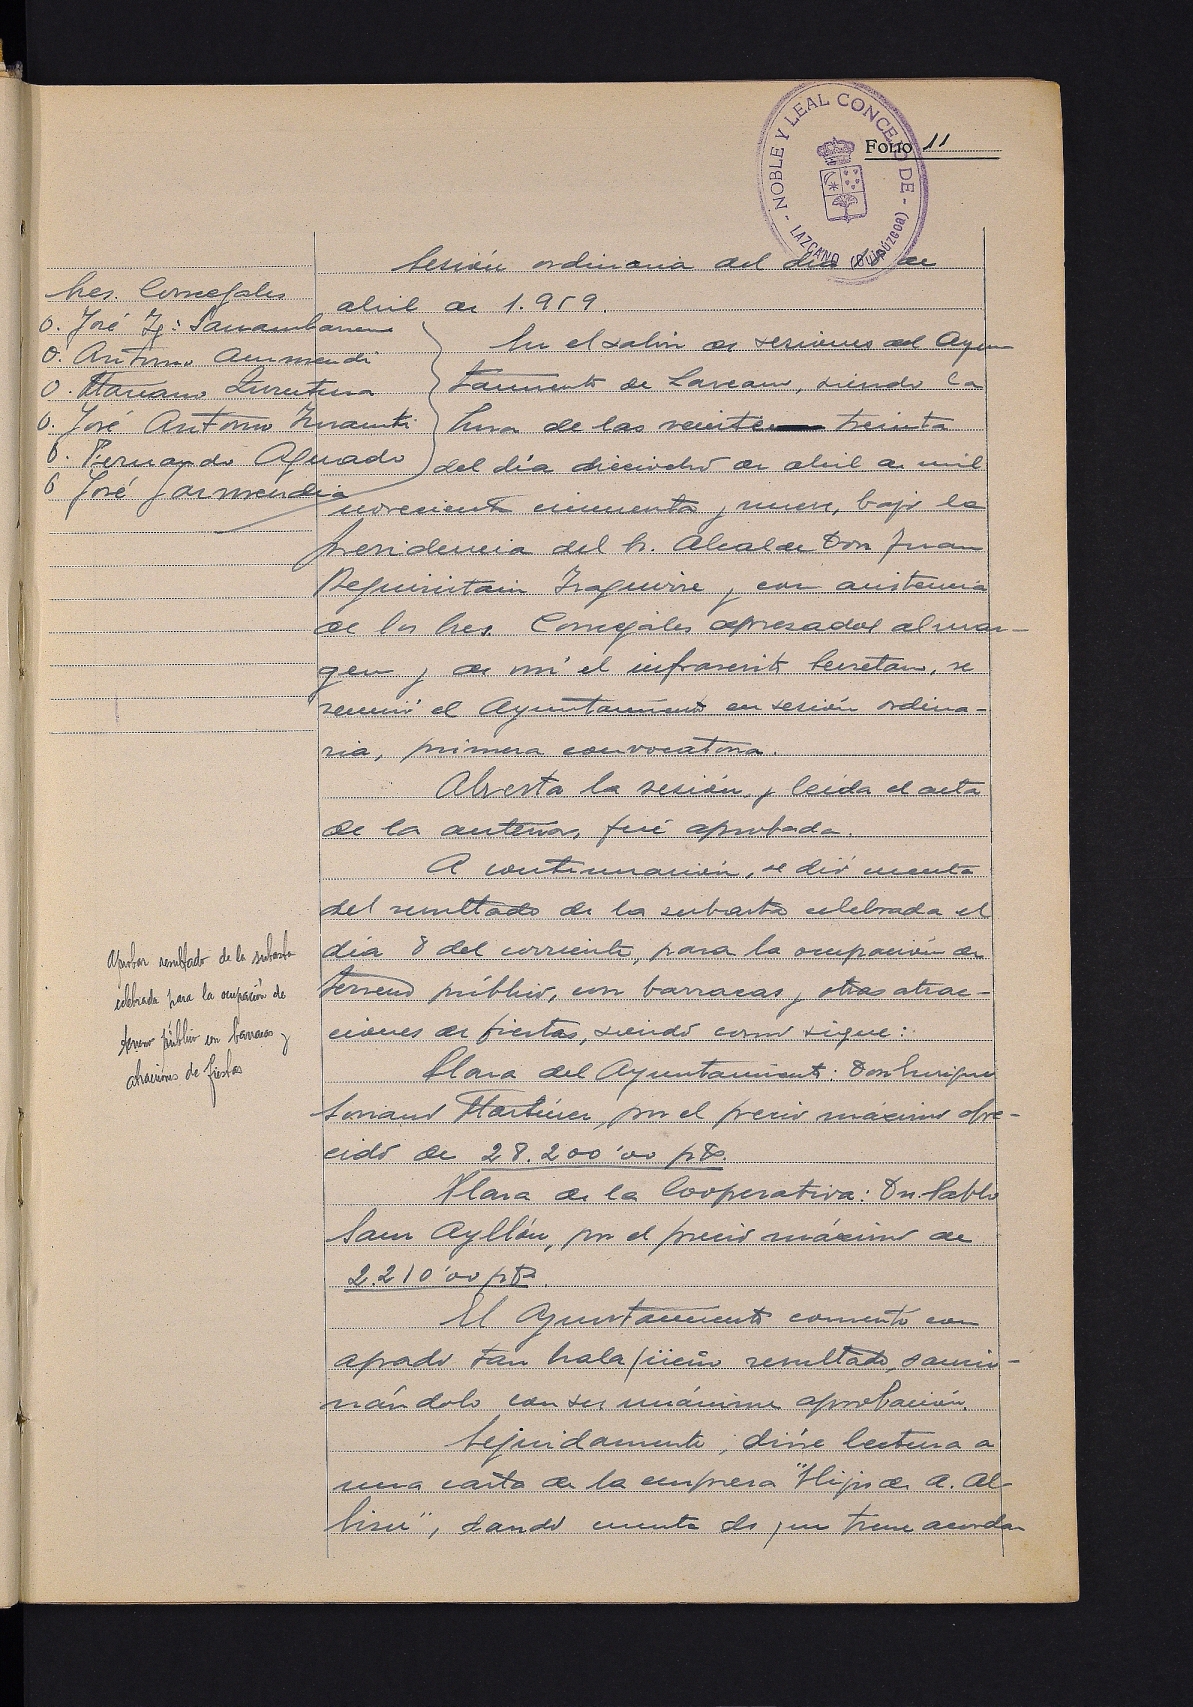 Folio 11
NOBLE Y LEAL CONCEJO DE - LAZCANO (Guipúzcoa) -
Sesión ordinaria del día de
abril de 1.959.
Sres. Concejales
D. José Ig:
D. Antonio Aurmendi
D. Mariano
D. José Antonio
D. Fernando Aguado
D. José Garmendia
En el salón de sesiones del Ayun
tamiento de Lazcano, siendo la
hora de las veinte treinta
del día dieciocho de abril de mil
novecientos cincuenta y nueve, bajo la
presidencia del Sr. Alcalde Don Juan
Beguiristain Iraguirre y con asistencia
de los Sres. Concejales expresados al mar-
gen y de mí el infrascrito Secretario, se
reunió el Ayuntamiento en sesión ordina-
ria, primera convocatoria.
Abierta la sesión, y leída el acta
de la anterior, fué aprobada.
A continuación, se dió cuenta
del resultado de la subasta celebrada el
día 8 del corriente, para la ocupación de
terreno público, con barracas y otras atrac-
ciones de fiestas, siendo como sigue:
Aprobar resultado de la subasta
celebrada para la ocupación de
terreno público con barracas y
atracciones de fiestas
Plaza del Ayuntamiento: Don Enrique
Soriano Martínez, por el precio máximo ofre-
cido de 28.200'00 pts.
Plaza de la Cooperativa: Dn Pablo
Sanz Ayllón, por el precio máximo de
2.210'00 pts.
El Ayuntamiento comentó con
agrado tan halagüeño resultado, sancio-
nándolo con su unánime aprobación.
Seguidamente, dióse lectura a
una carta de la empresa "Hijos de A. Al-
bisu", dando cuenta de que tiene acorda